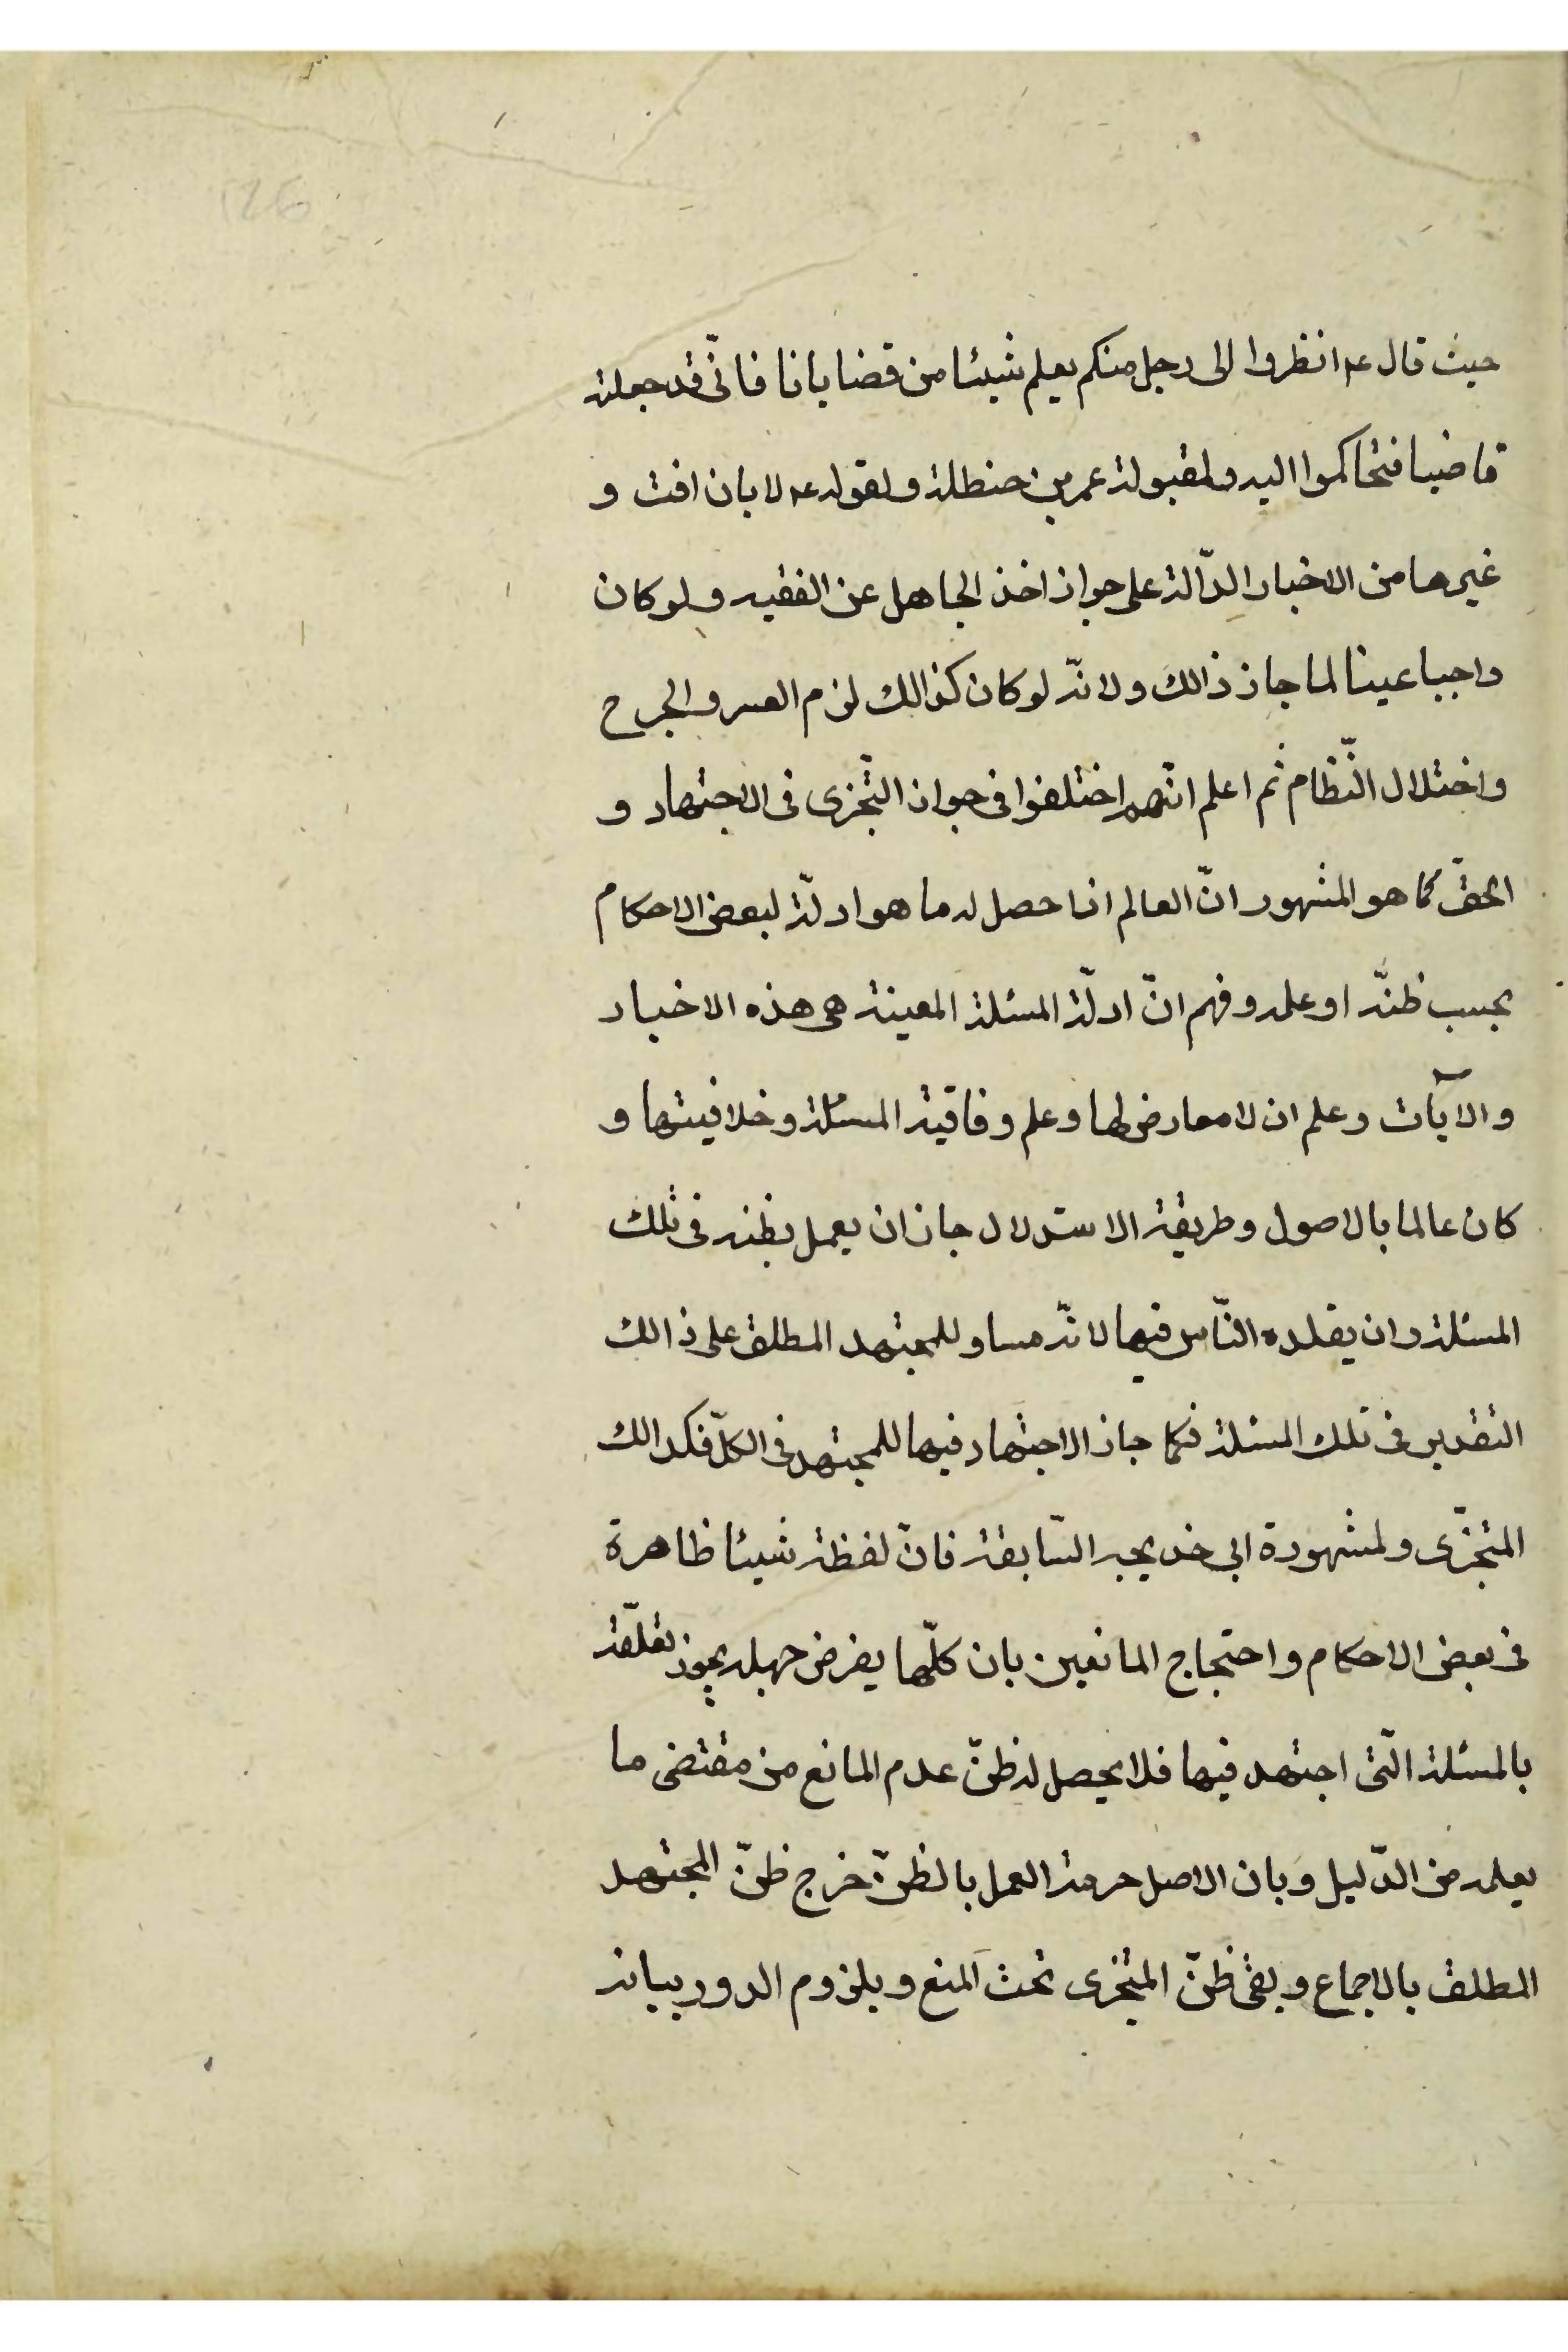 126
حيث قال عه انظروا الى رجل منكم يعلم شيئا من قضايانا فانّى قد جعلته
قاضيا فتحاكموا اليه ولمقبولة عمر بن حنظلة ولقوله عه لابان افت و
غيرها من الاخبار الدّالة على جواز اخذ الجاهل عن الفقيه ولو كان
واجبا عينا لما جاز ذالك ولانّه لو كان كذالك لزم العسر والحرج
واختلال النّظام ثم اعلم انّهم اختلفوا فى جواز التّجزى فى الاجتهاد و
الحقّ كما هو المشهور انّ العالم اذا حصل له ما هو ادلّة لبعض الاحكام
بحسب ظنّه او علمه وفهم انّ ادلّة المسئلة المعينة هى هذه الاخبار
والآيات وعلم ان لا معارض لها وعلم وفاقية المسئلة وخلافيتها و
كان عالما بالاصول وطريقة الاستدلال جاز ان يعمل بظنه فى تلك
المسئلة وان يقلده النّاس فيها لانّه مساو للمجتهد المطلق على ذالك
التقدير فى تلك المسئلة فكما جاز الاجتهاد فيها للمجتهد فى الكلّ فكذالك
المتجزّى ولمشهورة ابى خديجه السّابقة فانّ لفظة شيئا ظاهرة
فى بعض الاحكام واحتجاج المانعين بان كلّما يفرض جهله يجوز تعلّقه
بالمسئلة الّتى اجتهد فيها فلا يحصل له ظنّ عدم المانع من مقتضى ما
يعلمه من الدّليل وبان الاصل حرمة العمل بالظنّ خرج ظنّ المجتهد
المطلق بالاجماع وبقى ظنّ المتجزى تحت المنع وبلزوم الدور بيانه